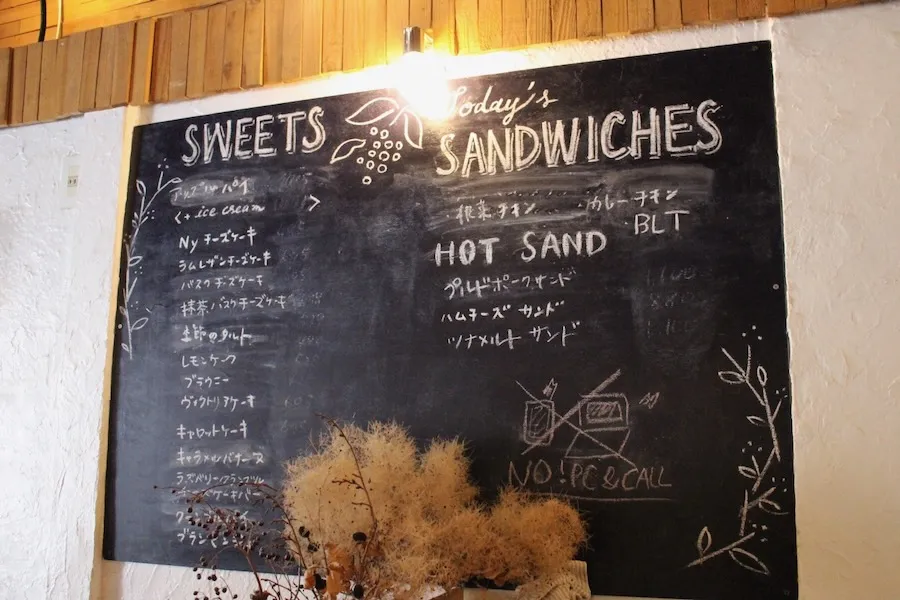 SWEETS
アップルパイ
<+ ice cream >
Ny チーズケーキ
ラムレザンチーズケーキ
バスクチーズケーキ
抹茶バスクチーズケーキ
季節のタルト
レモンケーク
ブラウニー
ヴィクトリアケーキ
キャロットケーキ
キャラメルバナーヌ
Today's
SANDWICHES
・根菜チキン ・カレーチキン
・BLT
HOT SAND
プルドポークサンド
ハムチーズ サンド
ツナメルト サンド
NO! PC & CALL